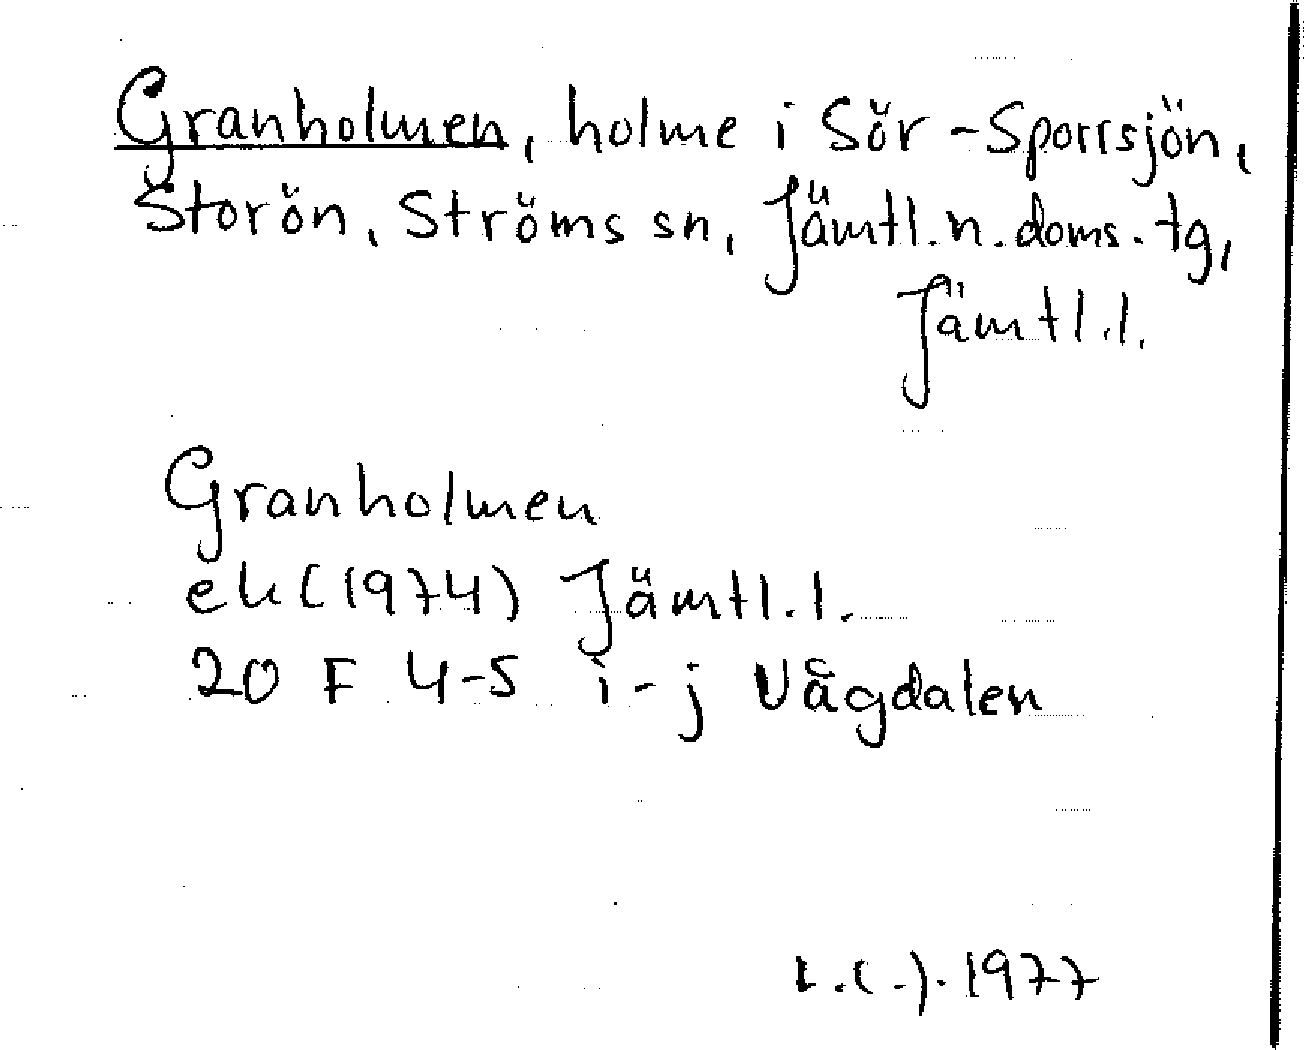 Granholmen, holme i Sör-Sporrsjön,
Storön, Ströms sn, Jämtl. n. doms. tg,
Jämtl. l.
Granholmen
ek (1974) Jämtl. l.
20 F 4-5 i-j Vågdalen
1977